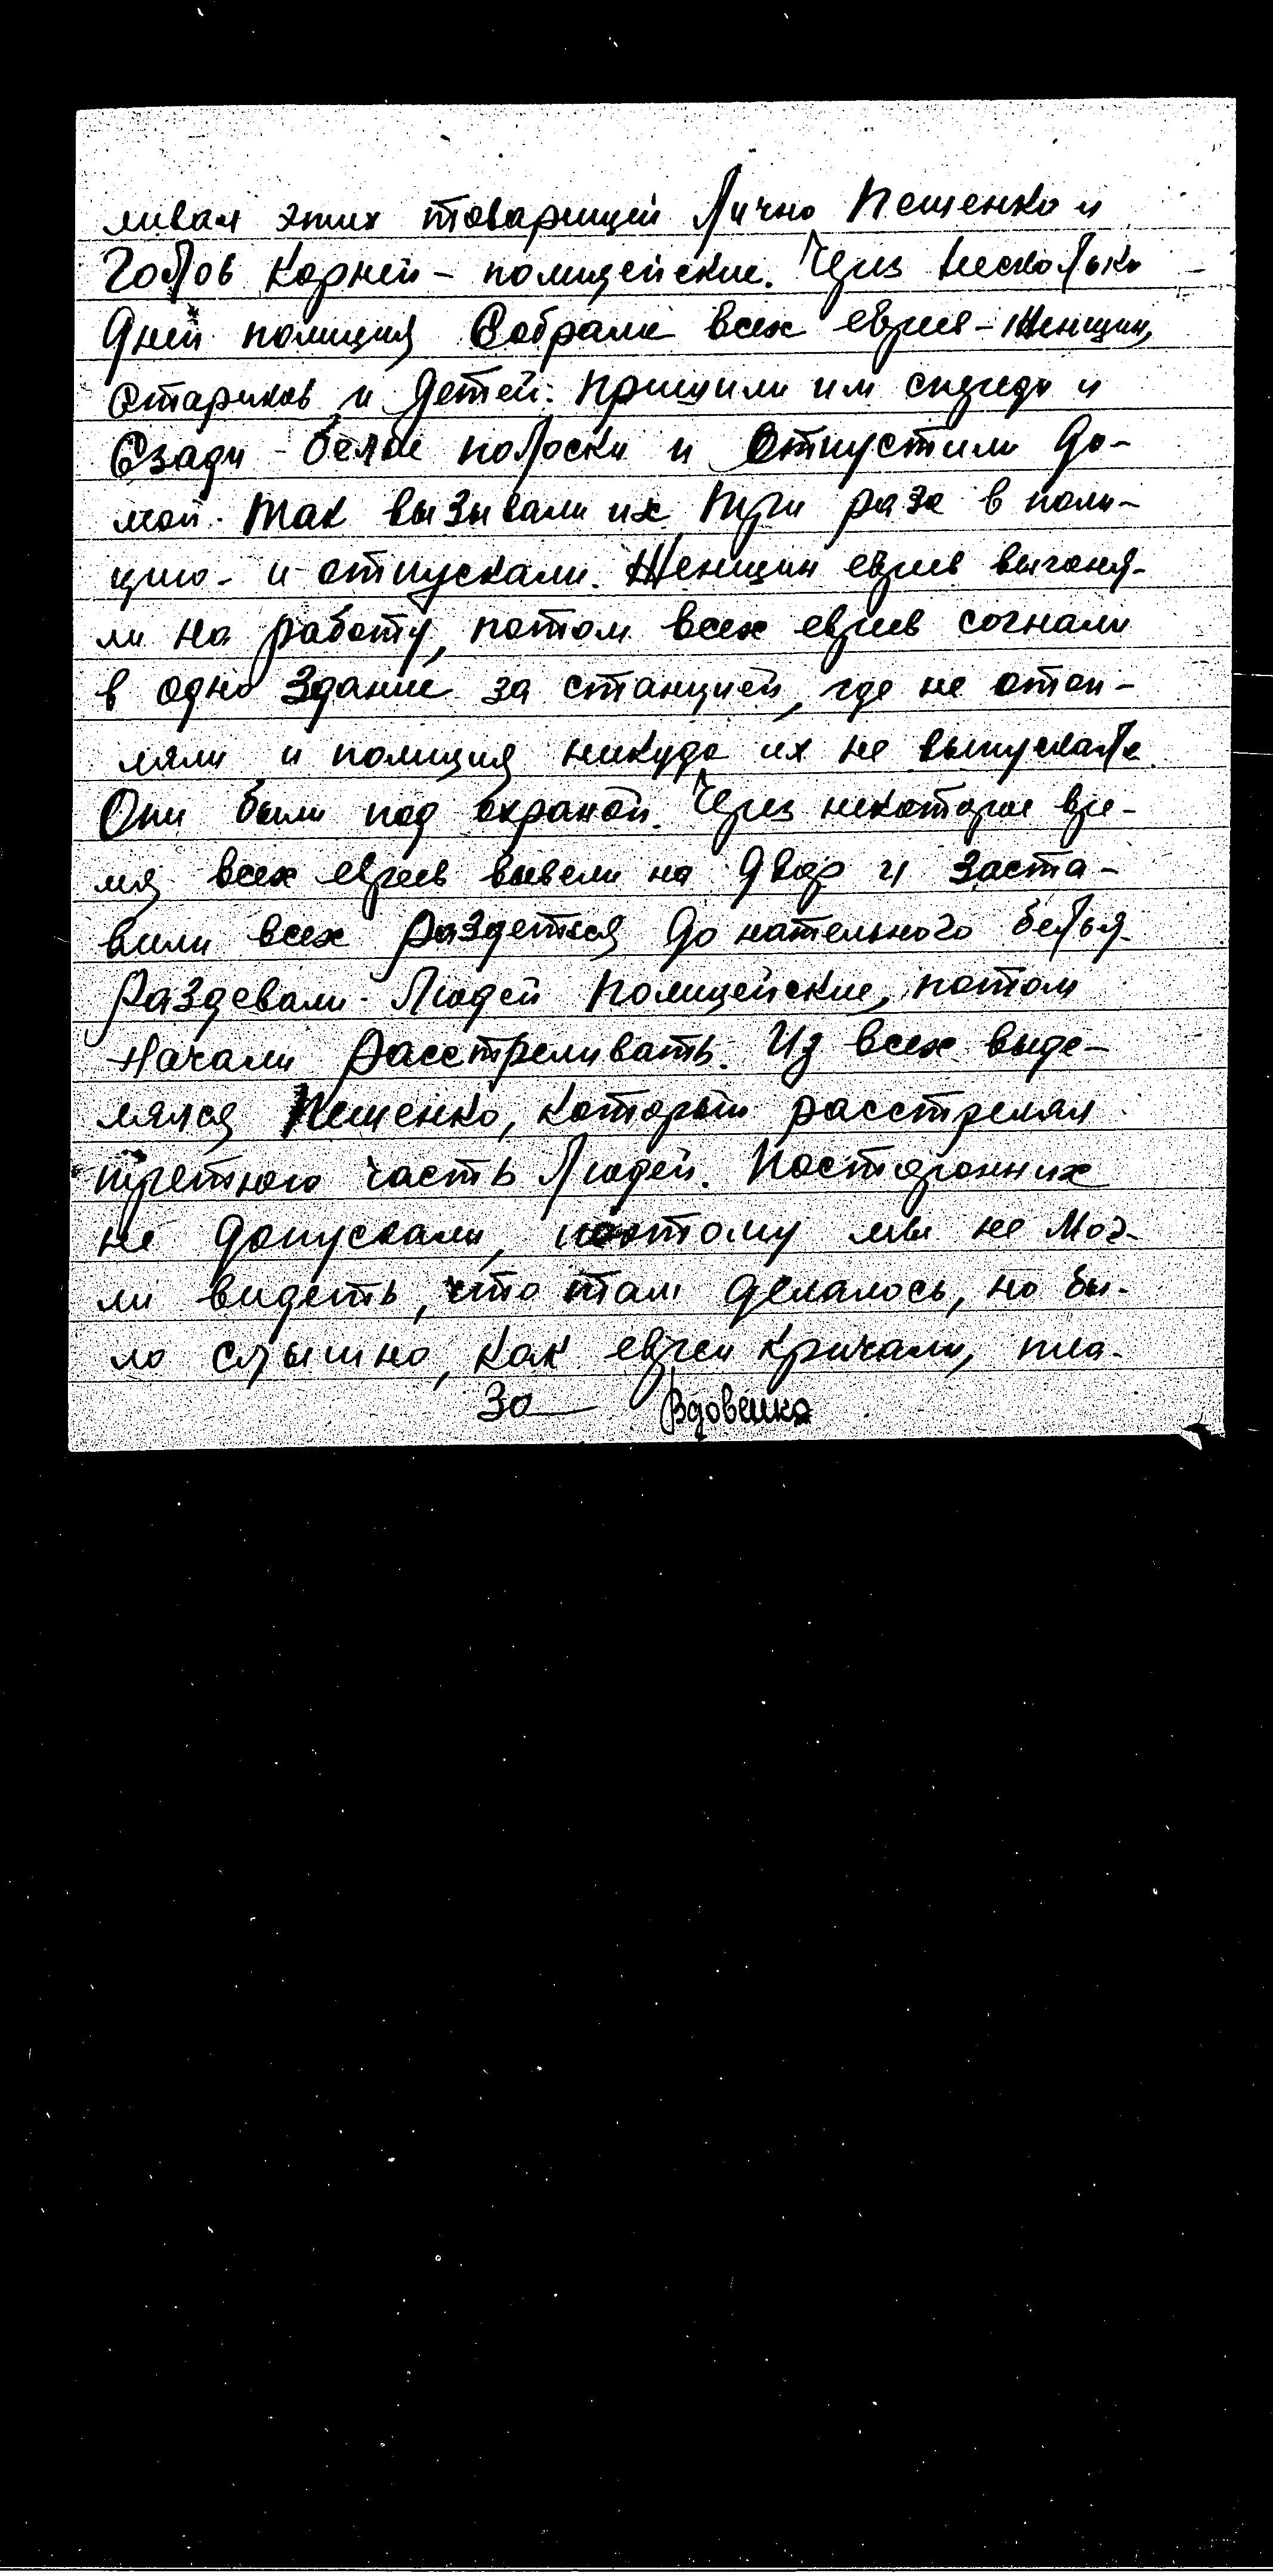 ливал этих товарищей лично Пешенко и
Голов Корней - полицейские. Через несколько
дней полиция собрала всех евреев - женщин,
стариков и детей. Пришили им спереди и
сзади - белые полоски и отпустили до-
мой. Так вызывали их три раза в поли-
цию - и отпускали. Женщин евреев выгоня-
ли на работу, потом всех евреев согнали
в одно здание за станцией, где не отоп-
ляли и полиция никуда их не выпускала.
Они были под охраной. Через некоторое вре-
мя всех евреев вывели на двор и заста-
вили всех раздеться до нательного белья.
Раздевали людей полицейские, потом
начали расстреливать. Из всех выде-
лялся Пешенко, который расстрелял
третью часть людей. Посторонних
не допускали, поэтому мы не мог-
ли видеть, что там делалось, но бы-
ло слышно, как евреи кричали, пла-
За Вдовенко